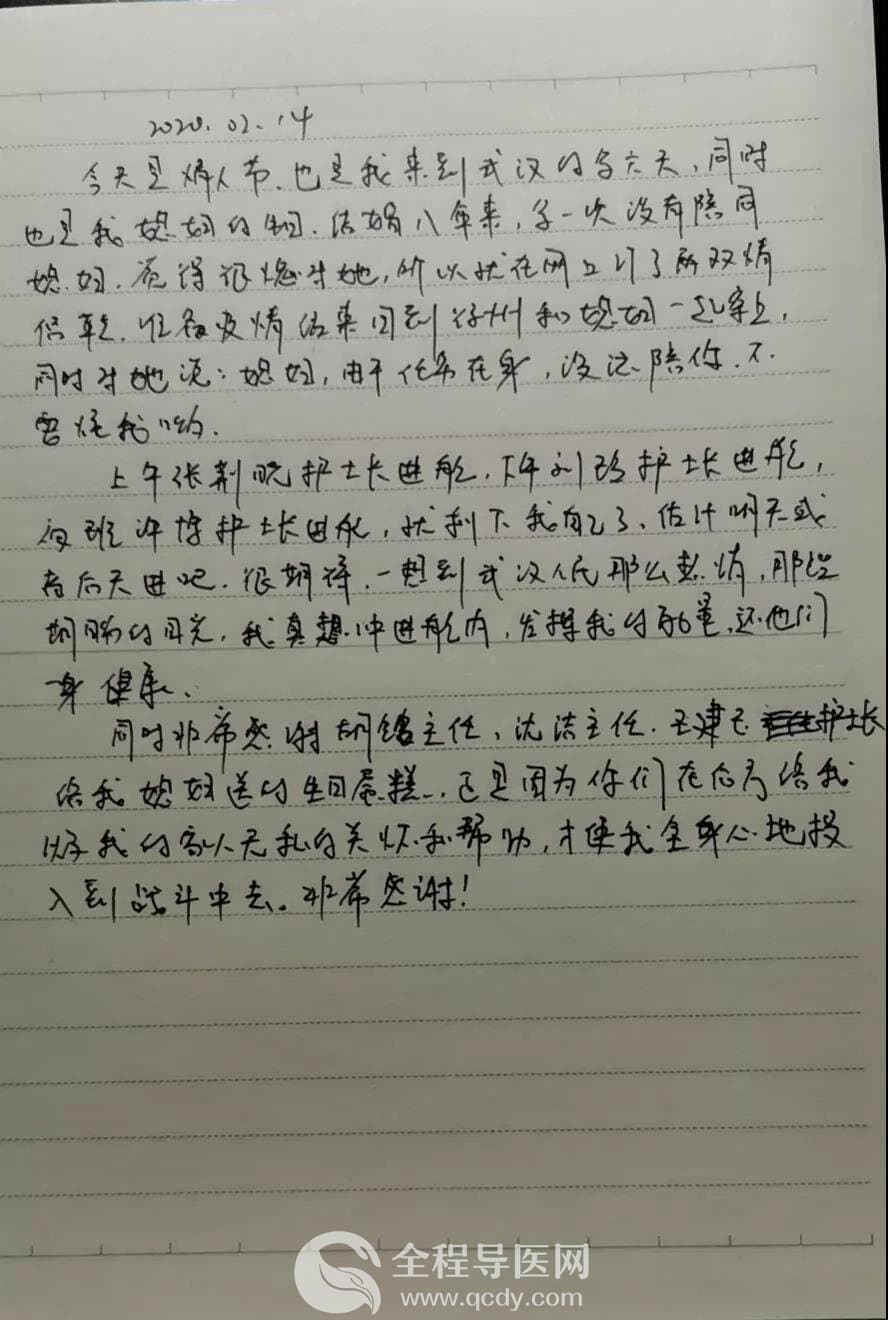 2020.02.14
今天是情人节、也是我来到武汉的第六天,同时
也是我媳妇的生日.结婚八年来,第一次没有陪同
媳妇.觉得很愧对她,所以就在网上订了两双情
侣鞋.准备疫情结束回到徐州和媳妇一起穿上,
同时对她说:媳妇,由于任务在身,没法陪你.不
要怪我哟.
上午张荆晓护士长进舱.下午刘玲护士长进舱,
夜班许博护士长进舱,就剩下我自己了、估计明天或
者后天进吧.很期待.一想到武汉人民那么热情,那些
期盼的目光,我真想冲进舱内,发挥我的能量,还他们
一身健康、
同时非常感谢胡主任、沈洁主任.王护士长
给我媳妇送的生日蛋糕..正是因为你们在后方给我
好我的家人无私的关怀和帮助,才使我全身心地投
入到战斗中去。非常感谢!
全程导医网
www.qcdy.com